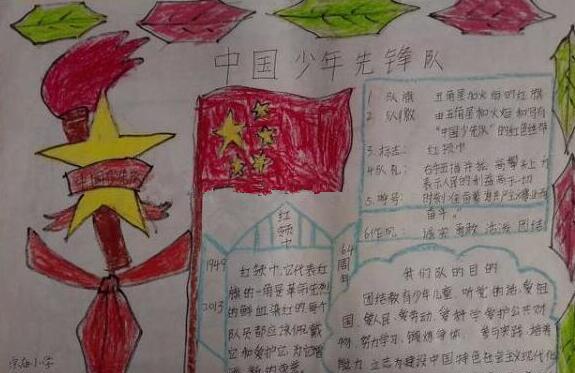 中国少年先锋队
1. 队旗 五角星加火炬的红旗
2. 队徽 由五角星和火炬和写有
"中国少先队"的红色绶带
3. 标志: 红领巾
4. 队礼: 右手五指并拢 高举头上
表示人民的利益高于一切
5. 呼号: 时刻准备着
奋斗。
6. 作风: 诚实 勇敢 活泼 团结
红领巾
1949
2013
64周年
红领巾,它代表红
旗的一角是革命先烈
的鲜血染红的每个
队员都应该佩戴
它和爱护它,为它增
我们队的目的
团结教育少年儿童、听党的话、爱祖
国、爱人民、爱劳动、爱科学、爱护公共财
物、努力学习、锻炼身体、参与实践、培养
能力、立志为建设中国特色社会主义现代化
小学